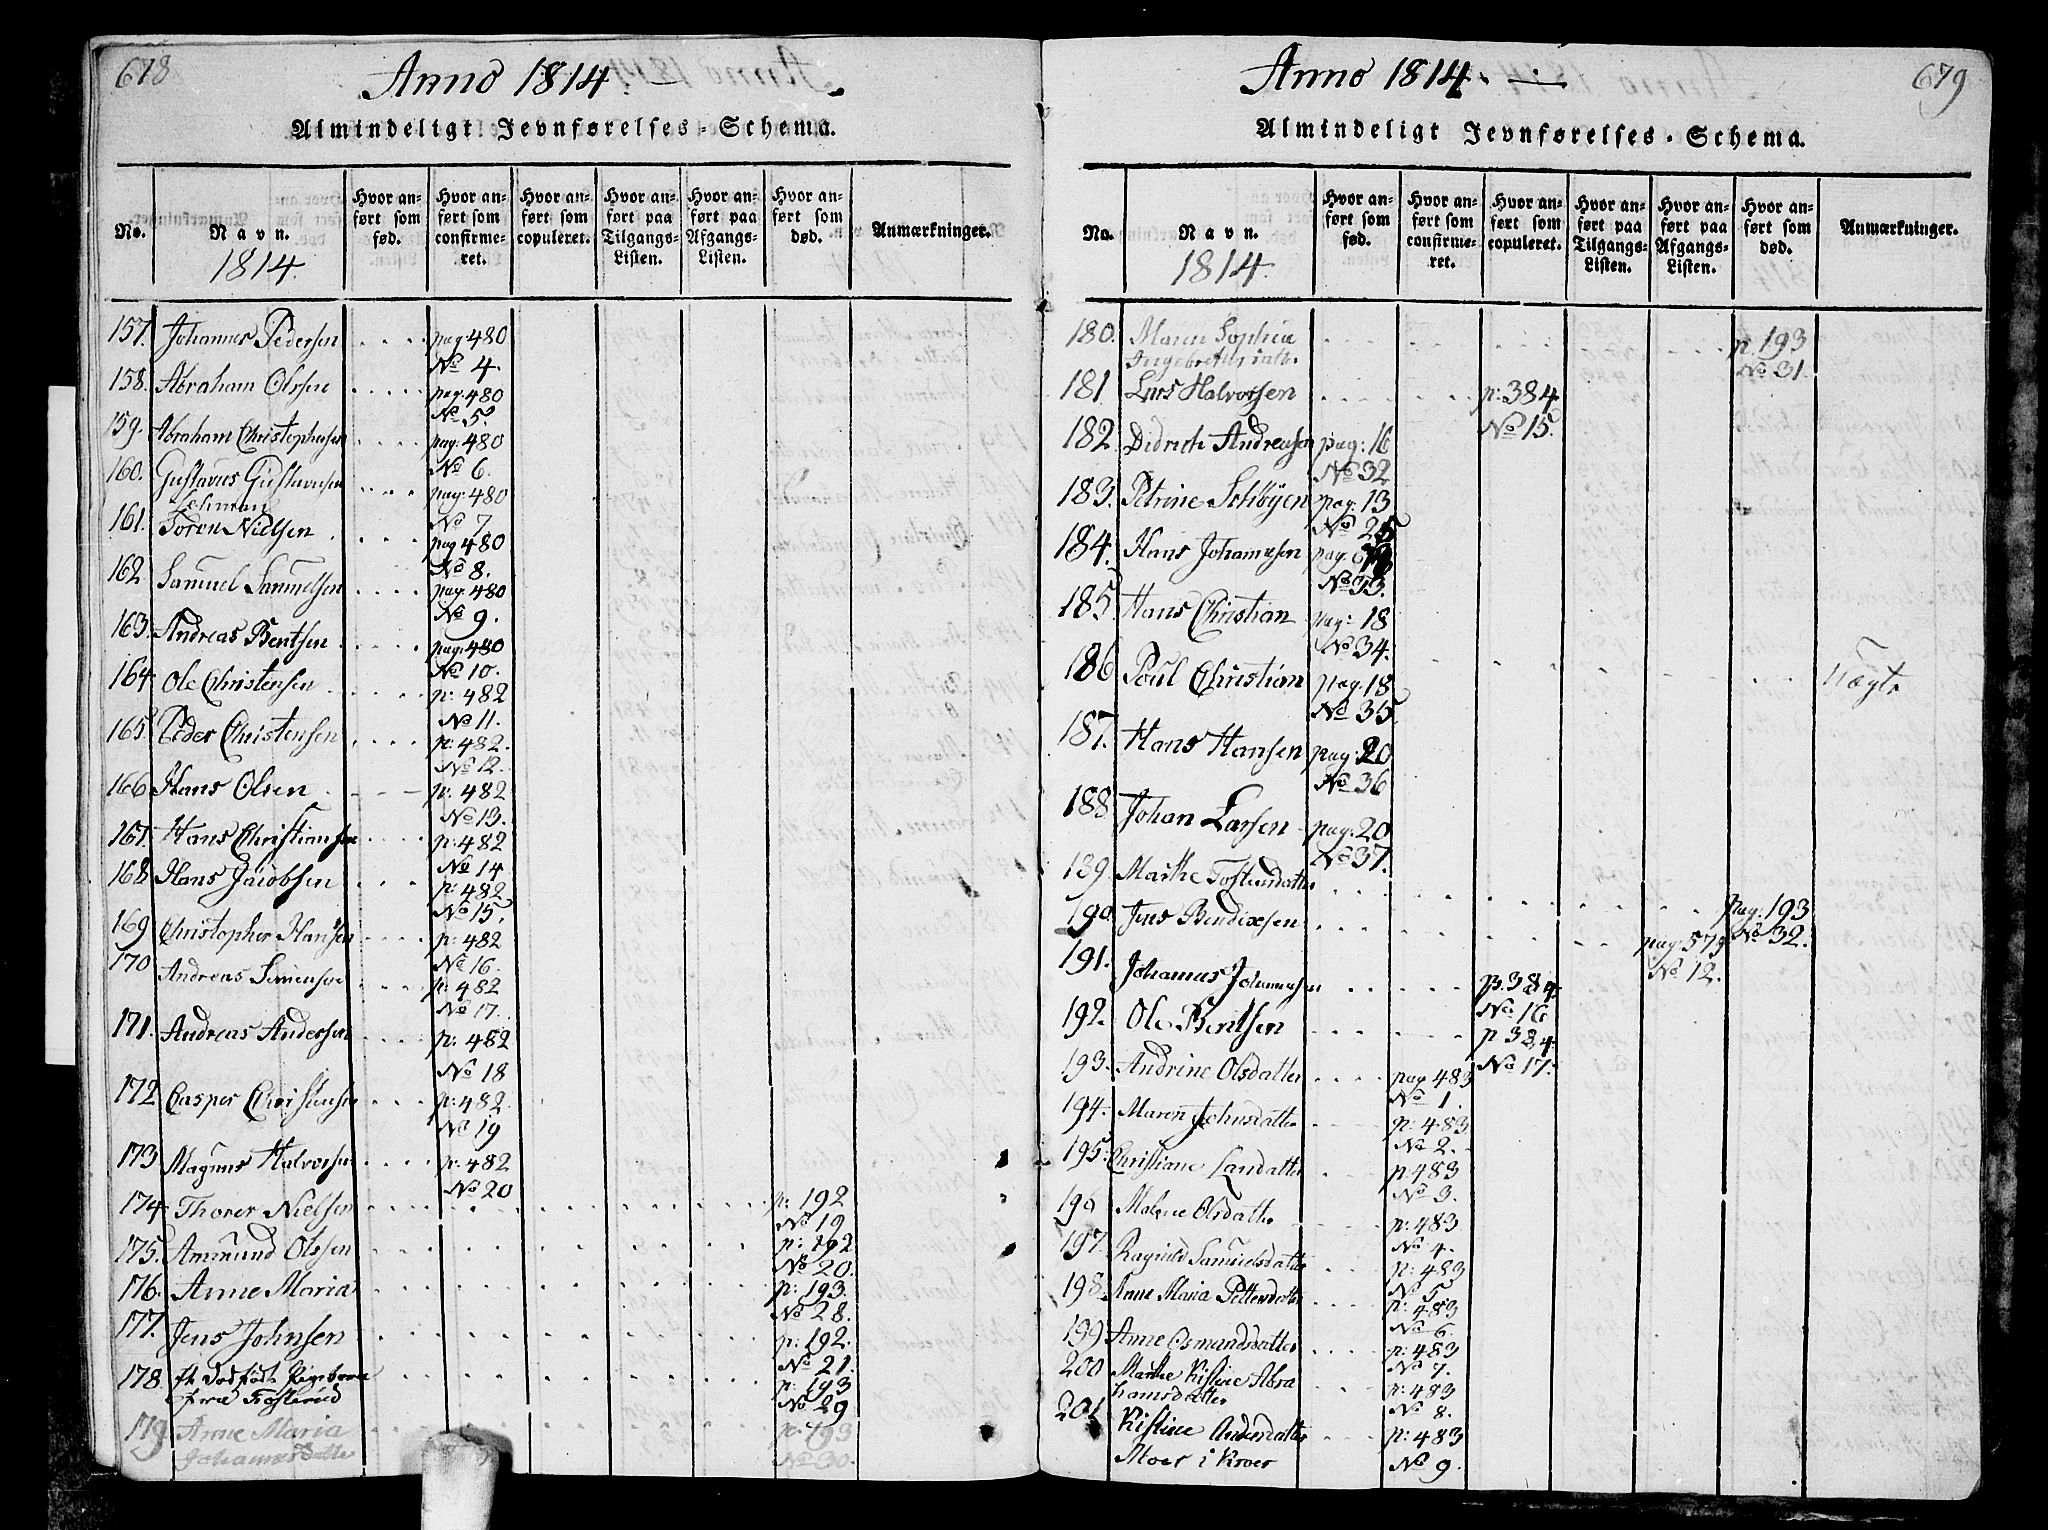 678
Anno 1814.
Almindeligt Jevnførelses-Schema.
No. Navn. Hvor anført som fød. Hvor anført som confirmeret. Hvor anført som copuleret. Hvor anført paa Tilgangs-Listen. Hvor anført paa Afgangs-Listen. Hvor anført som død. Anmærkninger.
1814
157. Johannes Pedersen pag: 480
No 4.
158. Abraham Olssen pag: 480
No 5.
159. Abraham Christophersen pag: 480
No 6.
160. Gustavus Gustavusen pag: 480
Lehman No 7.
161. Soren Nielsen pag 480
No 8.
162 Samuel Samuelsen pag: 480
No 9.
163. Andreas Bentsen pag: 480
No 10.
164 Ole Christensen p: 482
No 11.
165. Peder Christensen p: 482.
No 12.
166 Hans Olsen p: 482
No 13.
167. Hans Christiansen p: 482
No 14
168 Hans Jacobsen p: 482
No 15.
169 Christopher Hansen p: 482
No 16.
170 Andreas p: 482
No 17.
171. Andreas Andersen p: 482
No 18
172 Casper Christensen p: 482.
No 19
173 Magnus Halvorsen p: 482
No 20
174 Thorer Nielsen p: 192
No 19
175. Ammund Olssen p: 192
No 20.
176. Anne Maria p: 193.
No 28.
177. Jens Johnsen p: 192.
No 21.
178. et dødfødt Pigebarn p: 193
fra Fosterud No 29
179 Anne Maria p: 193
Johannesdatter No 30.
679
Anno 1814.
Almindeligt Jevnførelses-Schema.
No. Navn. Hvor anført som fød. Hvor anført som confirmeret. Hvor anført som copuleret. Hvor anført paa Tilgangs-Listen. Hvor anført paa Afgangs-Listen. Hvor anført som død. Anmærkninger.
1814.
180. Maren Sophia p. 193
Ingebretsdatter No 31.
181 Lars Halvorsen p: 384
No 15.
182 Didrich Andreasen pag: 16
No 32
183. Petrine pag: 13
No 25
184. Hans Johannesen pag:
No 33.
185 Hans Christian pag: 18
No 34.
186 Poul Christian pag. 18
No 35
187. Hans Hansen pag: 20
No 36
188 Johan Larsen pag: 20
No 37.
189. Marthe Tostensdatter pag: 193
No 32.
190 Jens Bendixsen pag: 579
No 12.
191. Johannes Johannesen p. 384.
No 16
192. Ole Bentsen p 384
No 17.
193. Andrine Olsdatter pag 483
No 1.
194. Maren Johnsdatter p: 483
No 2.
195. Christiane Larsdatter p: 483
No 3.
196 Malene Olsdatter p: 483
No 4.
197 Ragnild Samuelsdatter p: 483
No 5
198 Anne Maria Pettersdatter p: 483
No 6.
199 Anne Osmundsdatter p: 483
No 7.
200 Marthe Kistine Abra
hamsdatter p: 483
No 8.
201 Kistine Andersdatter p: 483
Moer i Kroer No 9.